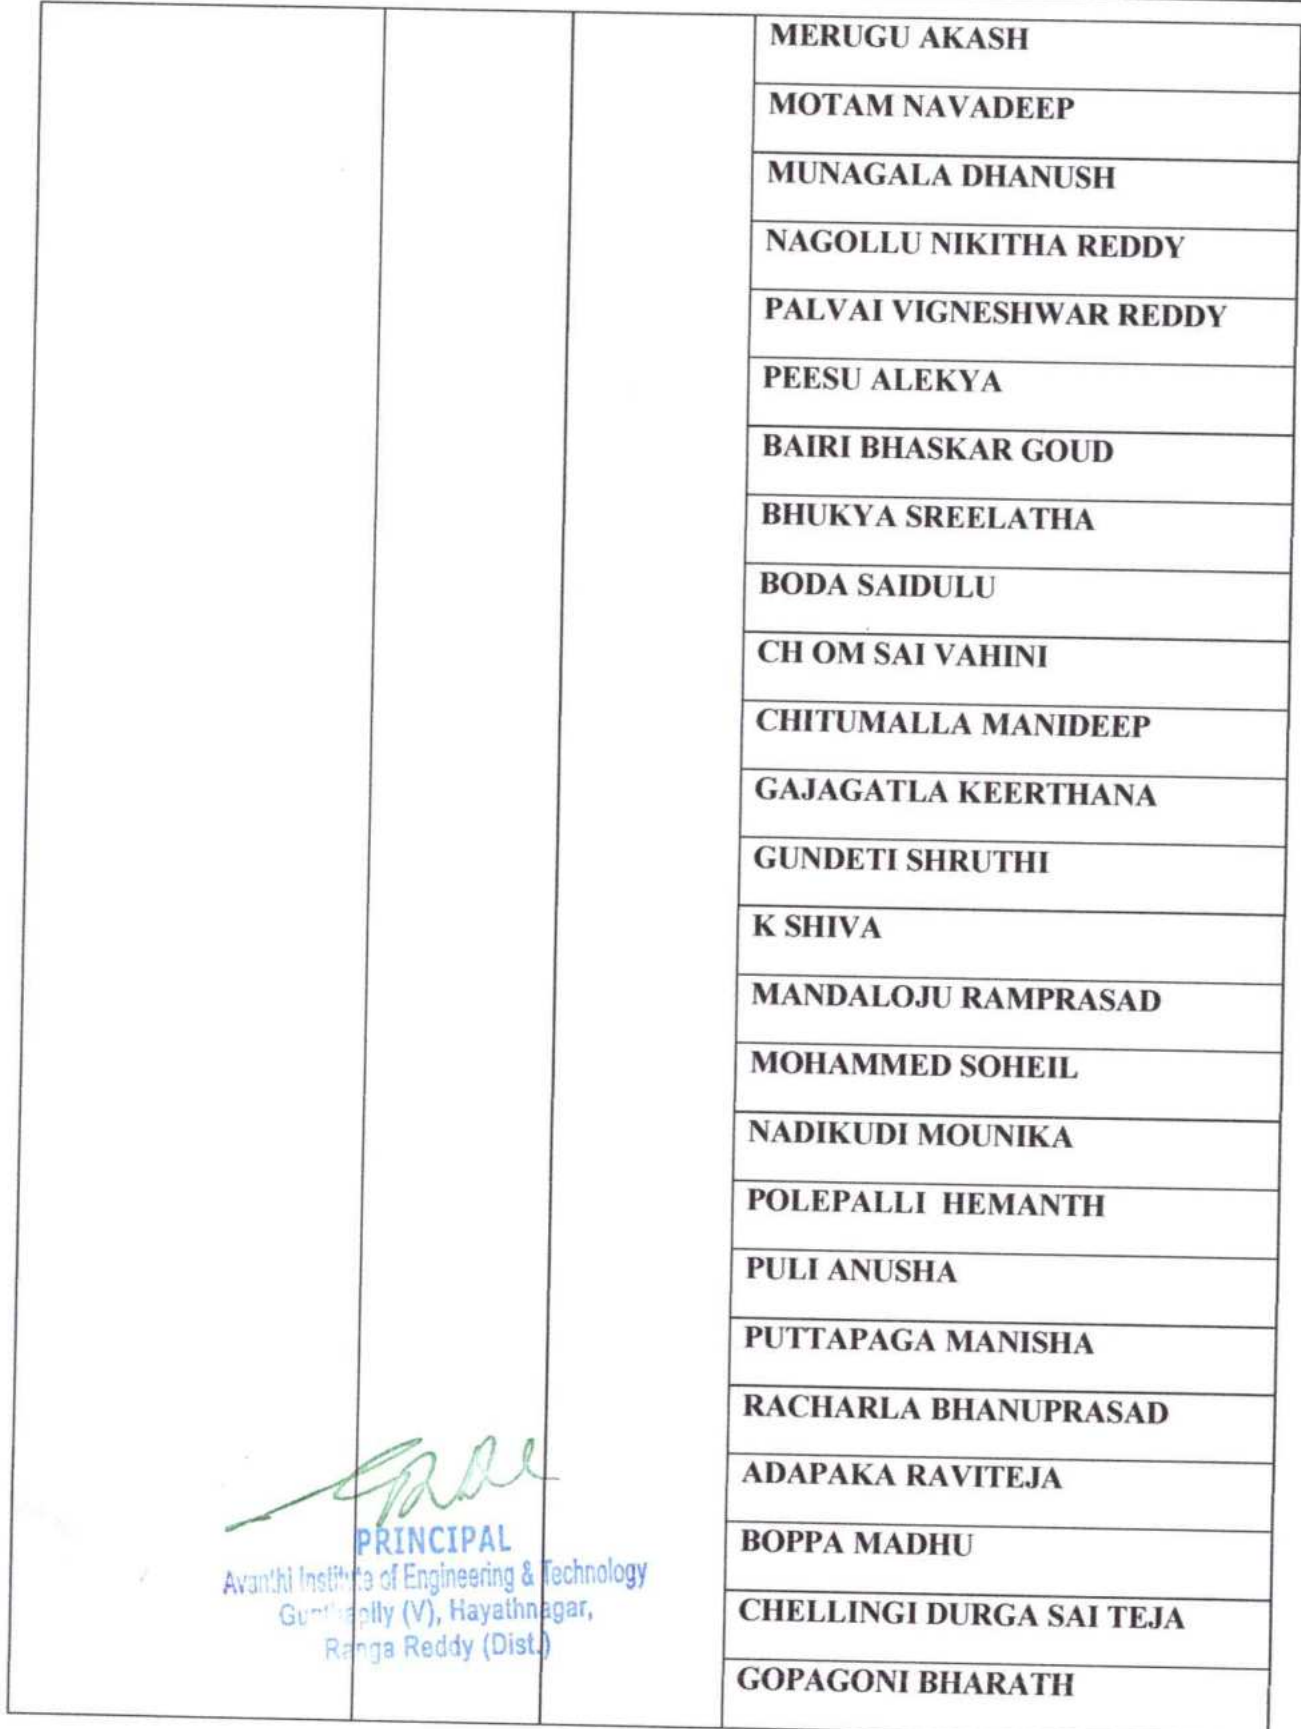 MERUGU AKASH
MOTAM NAVADEEP
MUNAGALA DHANUSH
NAGOLLU NIKITHA REDDY
PALVAI VIGNESHWAR REDDY
PEESU ALEKYA
BAIRI BHASKAR GOUD
BHUKYA SREELATHA
BODA SAIDULU
CH OM SAI VAHINI
CHITUMALLA MANIDEEP
GAJAGATLA KEERTHANA
GUNDETI SHRUTHI
K SHIVA
MANDALOJU RAMPRASAD
MOHAMMED SOHEIL
NADIKUDI MOUNIKA
POLEPALLI HEMANTH
PULI ANUSHA
PUTTAPAGA MANISHA
RACHARLA BHANUPRASAD
ADAPAKA RAVITEJA
BOPPA MADHU
CHELLINGI DURGA SAI TEJA
GOPAGONI BHARATH
PRINCIPAL
Avanthi Institute of Engineering & Technology
(V), Hayathnagar,
Ranga Reddy (Dist.)